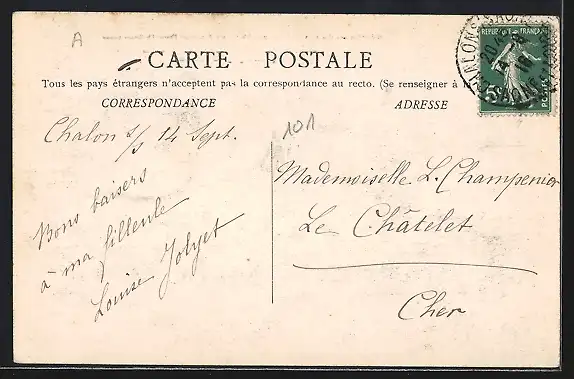 A
CARTE POSTALE
Tous les pays étrangers n'acceptent pas la correspondance au recto. (Se renseigner à
CORRESPONDANCE
ADRESSE
Chalon s/s 14 Sept.
101
Bons baisers
à ma filleule
Louise Jolyet
Mademoiselle L. Champenier
Le Châtelet
Cher
REPUBLIQUE FRANÇAISE
5c
POSTES